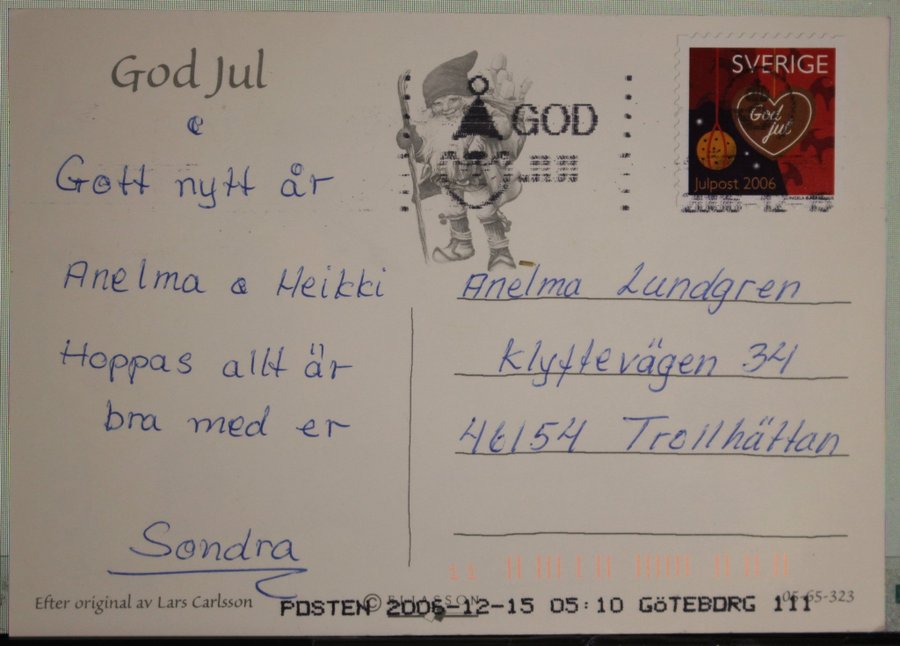 God Jul
&
Gott nytt år
Anelma & Heikki
Hoppas allt är
bra med er
Sondra
GOD
SVERIGE
God
jul
Julpost 2006
2006-12-15
Anelma Lundgren
Klyftevägen 34
46154 Trollhättan
Efter original av Lars Carlsson
© ELIASSON
05-65-323
POSTEN 2006-12-15 05:10 GÖTEBORG 111